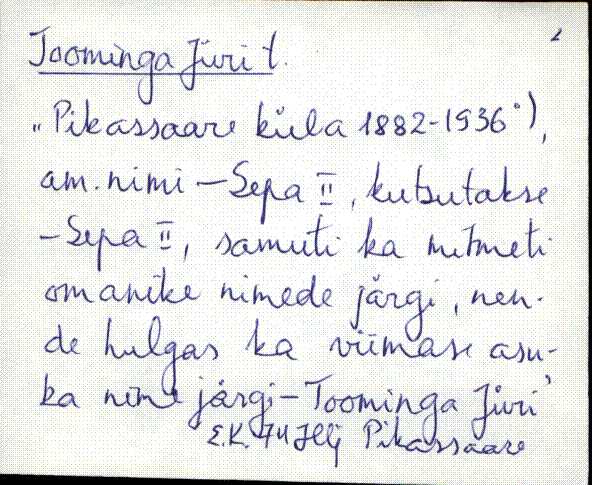 Toominga Jüri t.
„Pikassaare küla 1882-1936°),
am. nimi – Sepa II, kutsutakse
– Sepa II, samuti ka mitmeti
omanike nimede järgi, nen-
de hulgas ka viimase asu-
ka nime järgi – Toominga Jüri"
E.K. Pikassaare